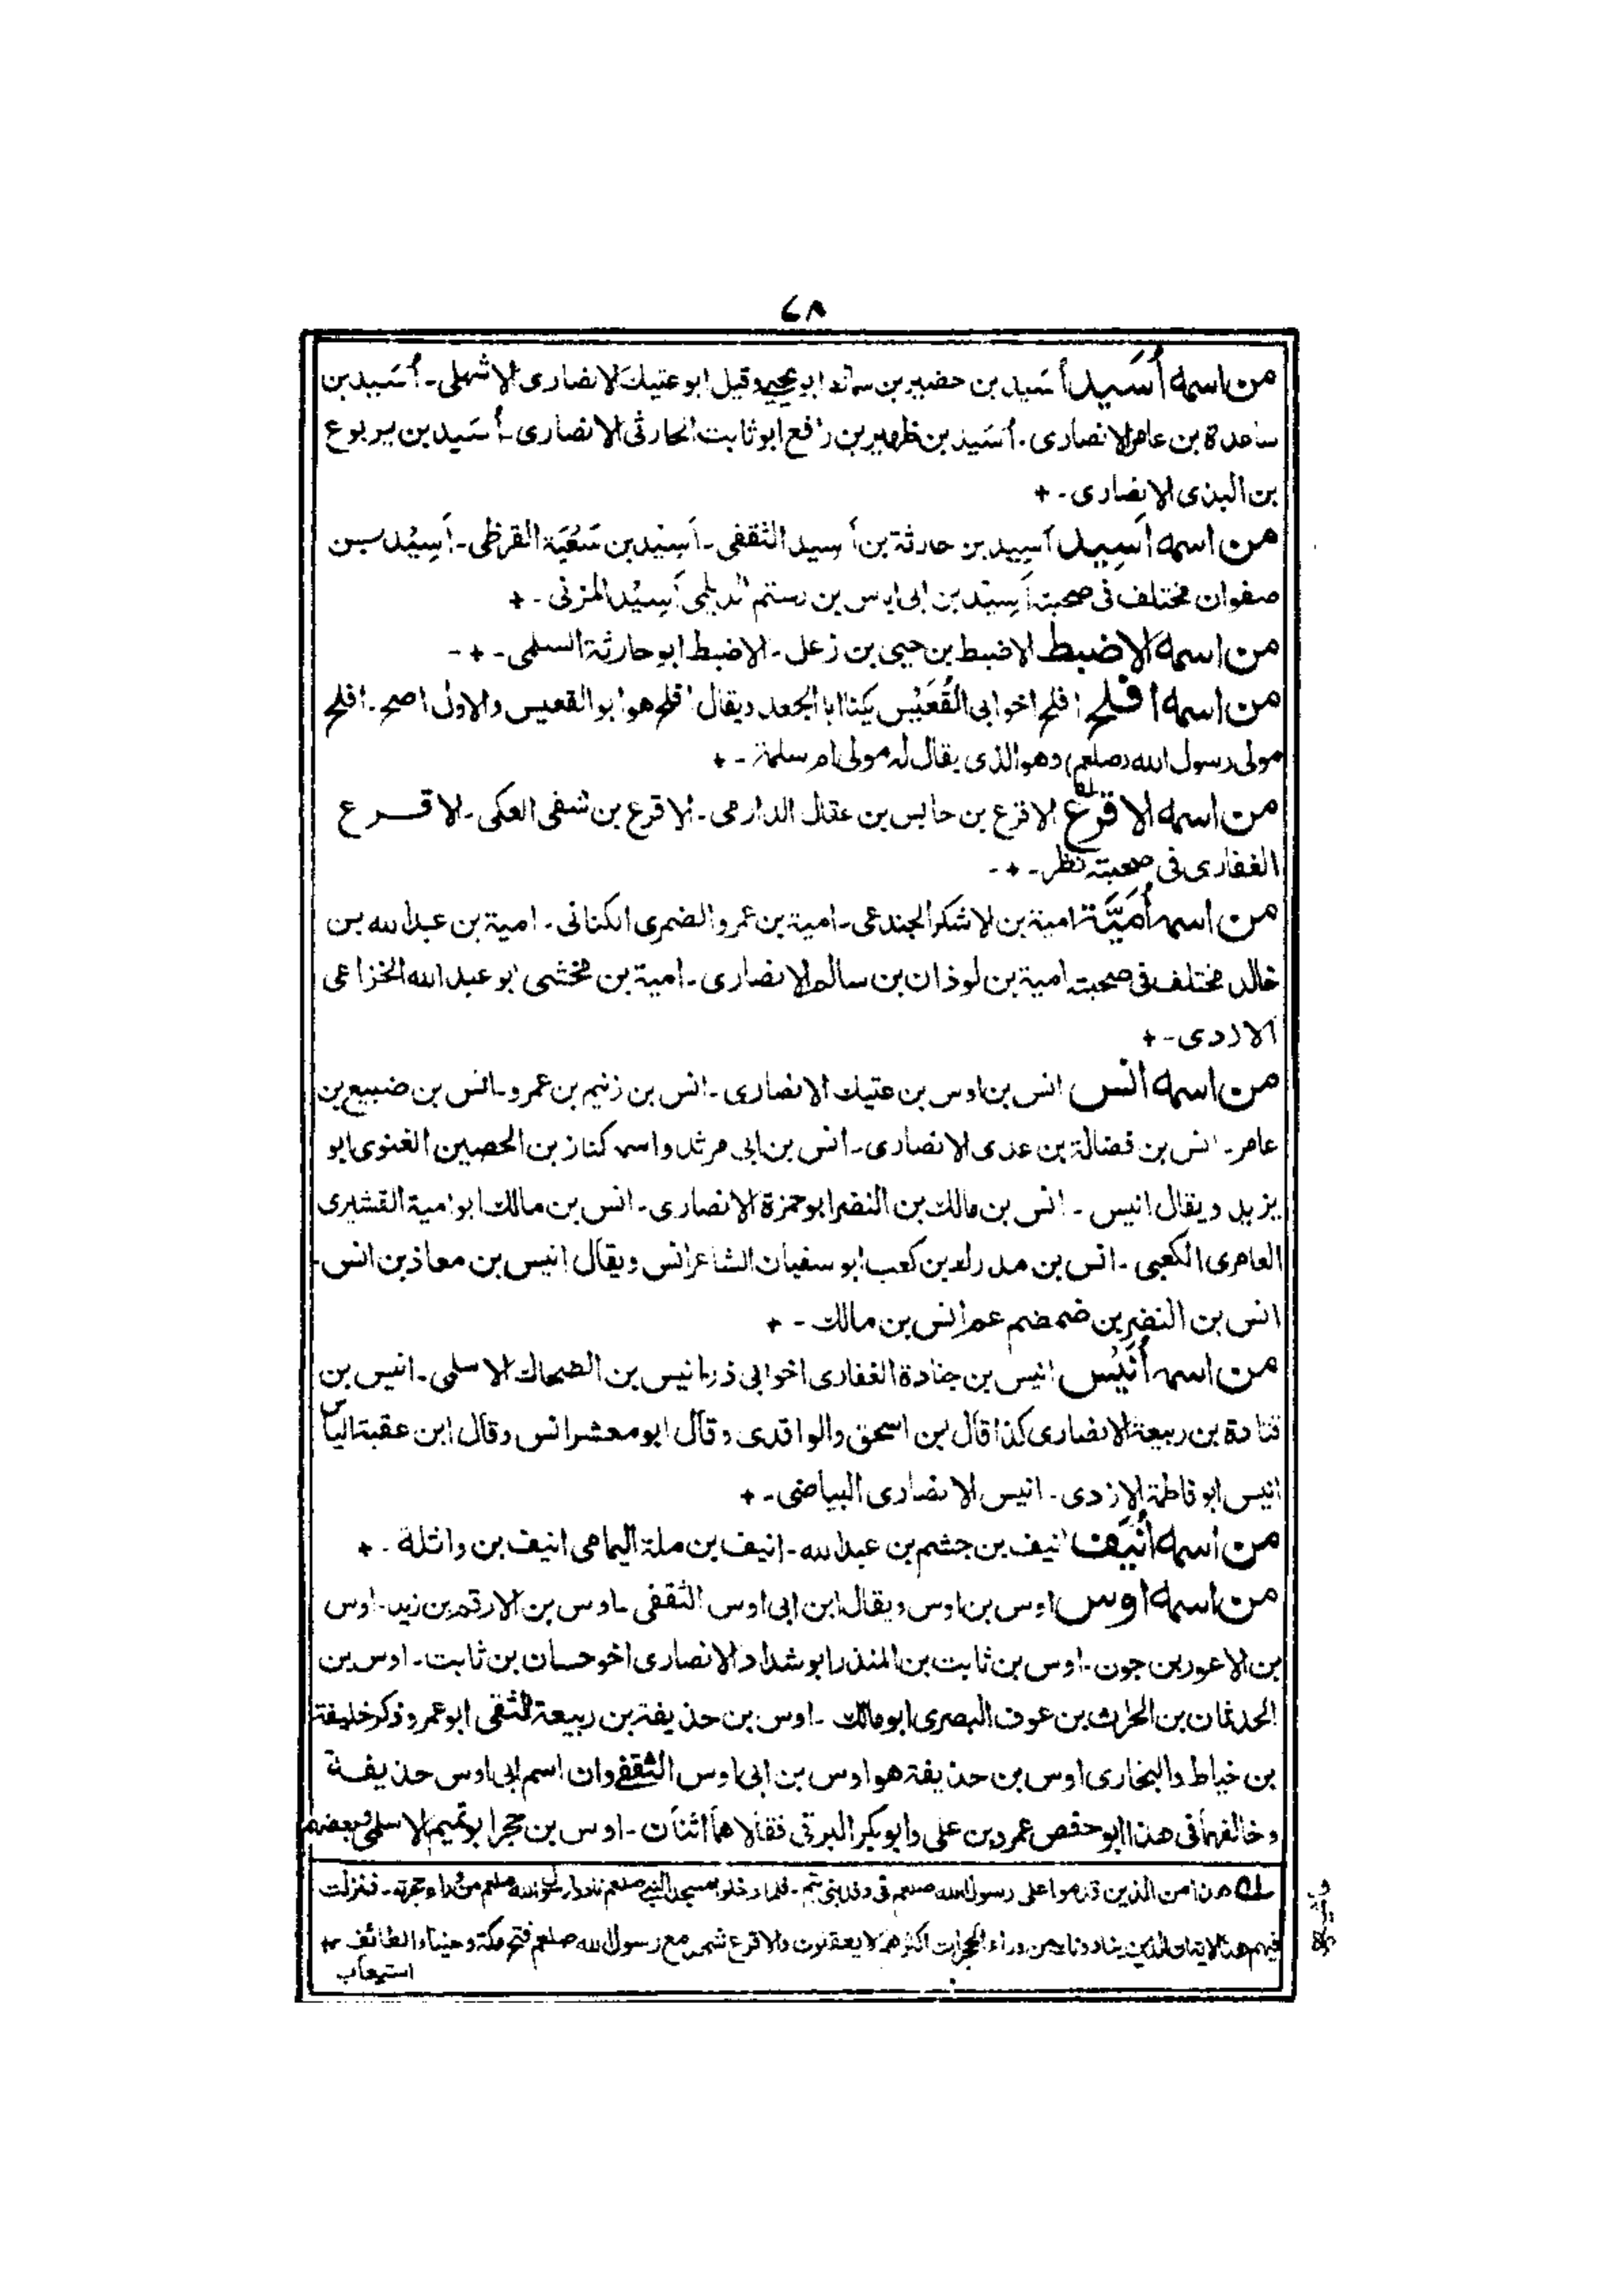 ٤٨
من اسمه أُسَيد أُسَيد بن حضير بن سماك ابو يحيى وقيل ابو عتيك الانصارى الاشهلى ـ أُسَيد بن
ساعدة بن عامر الانصارى ـ أُسَيد بن ظهير بن رافع ابو ثابت الحارثى الانصارى ـ أُسَيد بن يربوع
بن البذى الانصارى ـ +
من اسمه اَسِيد اَسِيد بن حارثة بن اَسِيد الثقفى ـ اَسِيد بن سَعْيَة القرظى ـ اَسِيْد بن
صفوان مختلف فى صحبته اَسِيْد بن ابى اياس بن رستم الديلمى اَسِيْد المزنى ـ +
من اسمه الاضبط الاضبط بن حيى بن زعل ـ الاضبط ابو حارثة السلمى ـ + ـ
من اسمه افلح افلح اخو ابى القُعَيْس يكنا ابا الجعد ويقال افلح هو ابو القعيس والاول اصح ـ افلح
مولى رسول الله (صلعم) وهو الذى يقال له مولى ام سلمة ـ +
من اسمه الاقرع الاقرع بن حابس بن عقال الدارمى ـ الاقرع بن شفى العكى ـ الاقرع
الغفارى فى صحبته نظر ـ + ـ
من اسمه أُمَيَّة امية بن لاشكر الجندعى ـ امية بن عمرو الضمرى الكنانى ـ امية بن عبد الله بن
خالد مختلف فى صحبته امية بن لوذان بن سالم الانصارى ـ امية بن مخشى ابو عبد الله الخزاعى
الازدى ـ +
من اسمه انس انس بن اوس بن عتيك الانصارى ـ انس بن زنيم بن عمرو ـ انس بن ضبيع بن
عامر ـ انس بن فضالة بن عدى الانصارى ـ انس بن ابى مرثد واسمه كناز بن الحصين الغنوى ابو
يزيد ويقال انيس ـ انس بن مالك بن النضر ابو حمزة الانصارى ـ انس بن مالك ابو امية القشيرى
العامرى الكعبى ـ انس بن مدرك بن كعب ابو سفيان الشاعر انس ويقال انيس بن معاذ بن انس ـ
انس بن النضر بن ضمضم عم انس بن مالك ـ +
من اسمه أُنَيْس انيس بن جنادة الغفارى اخو ابى ذر انيس بن الضحاك الاسلمى ـ انيس بن
قتادة بن ربيعة الانصارى كذا قال بن اسحق والواقدى وقال ابو معشر انس وقال ابن عقبة الياس
انيس ابو فاطمة الازدى ـ انيس الانصارى البياضى ـ +
من اسمه اُنَيف انيف بن جشم بن عبد الله ـ انيف بن ملة اليمامى انيف بن واثلة ـ +
من اسمه اوس اوس بن اوس ويقال ابن ابى اوس الثقفى ـ اوس بن الارقم بن زيد ـ اوس
بن الاعور بن جون ـ اوس بن ثابت بن المنذر ابو شداد الانصارى اخو حسان بن ثابت ـ اوس بن
الحدثان بن الحارث بن عوف البصرى ابو مالك ـ اوس بن حذيفة بن ربيعة الثقفى ابو عمرو ذكر خليفة
بن خياط والبخارى اوس بن حذيفة هو اوس بن ابى اوس الثقفى وان اسم ابى اوس حذيفة
وخالفهما فى هذا ابو حفص عمرو بن على وابو بكر البرقى فقالا هما اثنان ـ اوس بن حجر ابو تميم الاسلمى وبعضهم
له هو من الذين قدموا على رسول الله صلعم فى وفد بنى تميم ـ فلما دخلوا مسجد النبى صلعم نادوا رسول الله صلعم من وراء حجرته ـ فنزلت
فيهم هذه الاية ان الذين ينادونك من وراء الحجرات اكثرهم لا يعقلون والاقرع شهد مع رسول الله صلعم فتح مكة وحنينا والطائف +
استيعاب